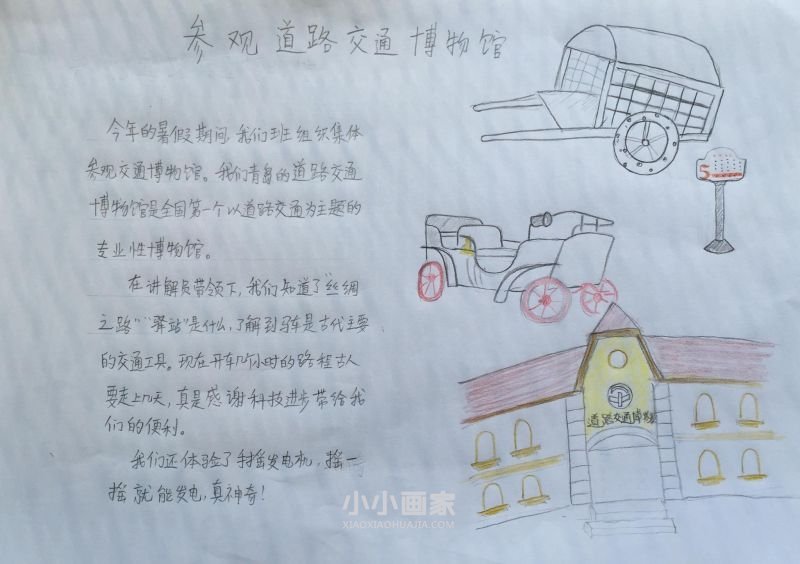 参观道路交通博物馆
今年的暑假期间,我们班组织集体
参观交通博物馆。我们青岛的道路交通
博物馆是全国第一个以道路交通为主题的
专业性博物馆。
在讲解员带领下,我们知道了“丝绸
之路”“驿站”是什么,了解到马车是古代主要
的交通工具。现在开车几小时的路程古人
要走上几天,真是感谢科技进步带给我
们的便利。
我们还体验了手摇发电机,摇一
摇就能发电,真神奇!
5
道路交通博物馆
小小画家
XIAOXIAOHUAJIA.COM